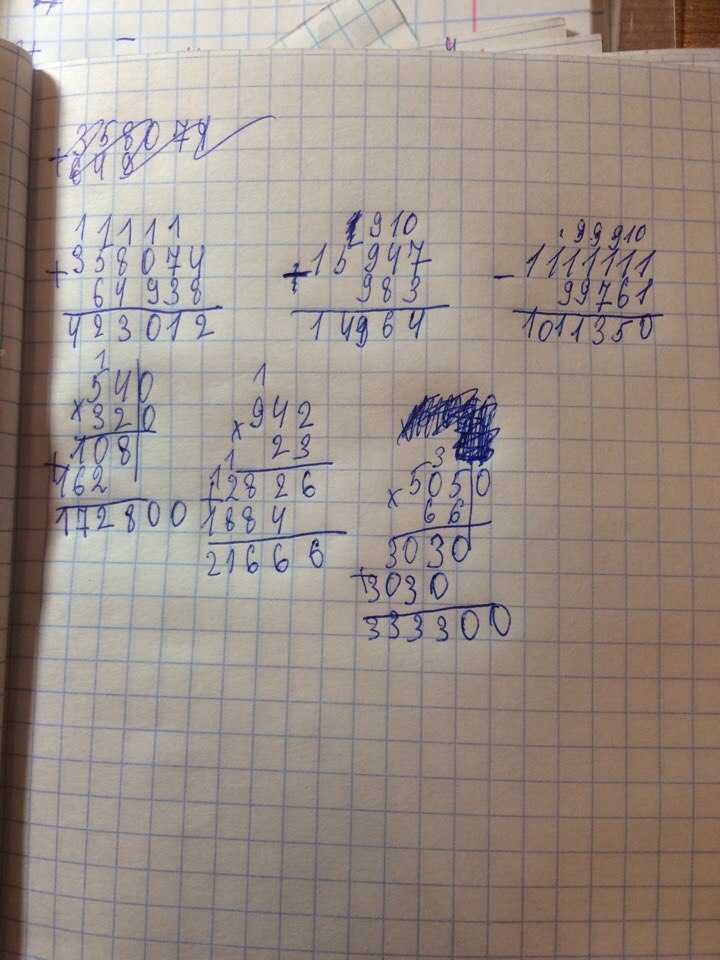 358074
+ 649
11111
+ 358074
64938
423012
1 910
+ 15947
983
14964
99910
- 1111111
99761
1011350
1
× 540
320
108
+ 162
172800
1
× 942
23
11
2826
+ 1884
21666
3
× 5050
66
3030
+ 3030
333300